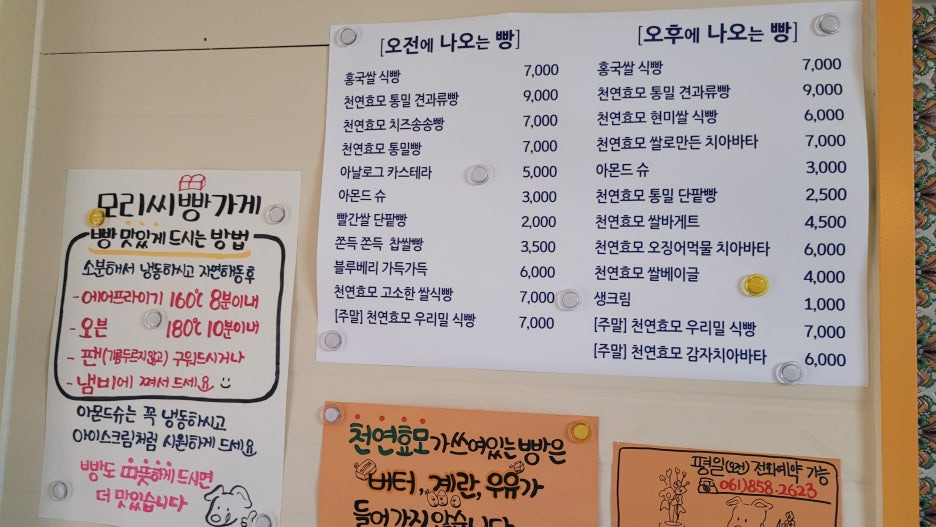 모리씨빵가게
빵 맛있게 드시는 방법
소분해서 냉동하시고 자연해동후
- 에어프라이기 160℃ 8분이내
- 오븐 180℃ 10분이내
- 팬(기름두르지않고) 구워드시거나
- 냄비에 쪄서 드세요
아몬드슈는 꼭 냉동하시고
아이스크림처럼 시원하게 드세요
빵도 따뜻하게 드시면
더 맛있습니다
[오전에 나오는 빵]
홍국쌀 식빵 7,000
천연효모 통밀 견과류빵 9,000
천연효모 치즈송송빵 7,000
천연효모 통밀빵 7,000
아날로그 카스테라 5,000
아몬드 슈 3,000
빨간쌀 단팥빵 2,000
쫀득 쫀득 찹쌀빵 3,500
블루베리 가득가득 6,000
천연효모 고소한 쌀식빵 7,000
[주말] 천연효모 우리밀 식빵 7,000
[오후에 나오는 빵]
홍국쌀 식빵 7,000
천연효모 통밀 견과류빵 9,000
천연효모 현미쌀 식빵 6,000
천연효모 쌀로만든 치아바타 7,000
아몬드 슈 3,000
천연효모 통밀 단팥빵 2,500
천연효모 쌀바게트 4,500
천연효모 오징어먹물 치아바타 6,000
천연효모 쌀베이글 4,000
생크림 1,000
[주말] 천연효모 우리밀 식빵 7,000
[주말] 천연효모 감자치아바타 6,000
천연효모가 쓰여있는 빵은
버터, 계란, 우유가
들어가지 않습니다
평일(오전) 전화예약 가능
061)858.2623